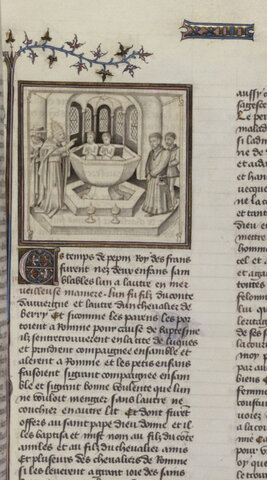 xxiiii
Es temps de pepin roy des frans
furent nez deux enfans sam
blables lun a lautre en mer
veilleuse maniere. lun fu filz du conte
dauvergne et lautre dun chevalier de
berry Et si comme les parens les por
toient a romme pour cause de baptesme
ilz sentretrouverent en la cite de luques
et prindrent compaignie ensamble et
alerent a romme Et les petis enfans
faisoient si grant compaignie ensam
ble et si grant bonne voulente que lun
ne vouloit mengier sans lautre ne
couchier en autre lit Et dont furent
offers au saint pape dieu donne et il
les baptisa et mist nom au filz du conte
amiles et au filz du chevalier amis
Et plusieurs des chevaliers de romme
si les leverent a grant ioie des sains
aussy
sagesce
Le per
maladie
si ladm
ne de
et aida
et han
ne la
tant
dieu
mettre
homme
cel et
et a
toutes
moy
par
faire
femme
voustu
avoir
pour
roy